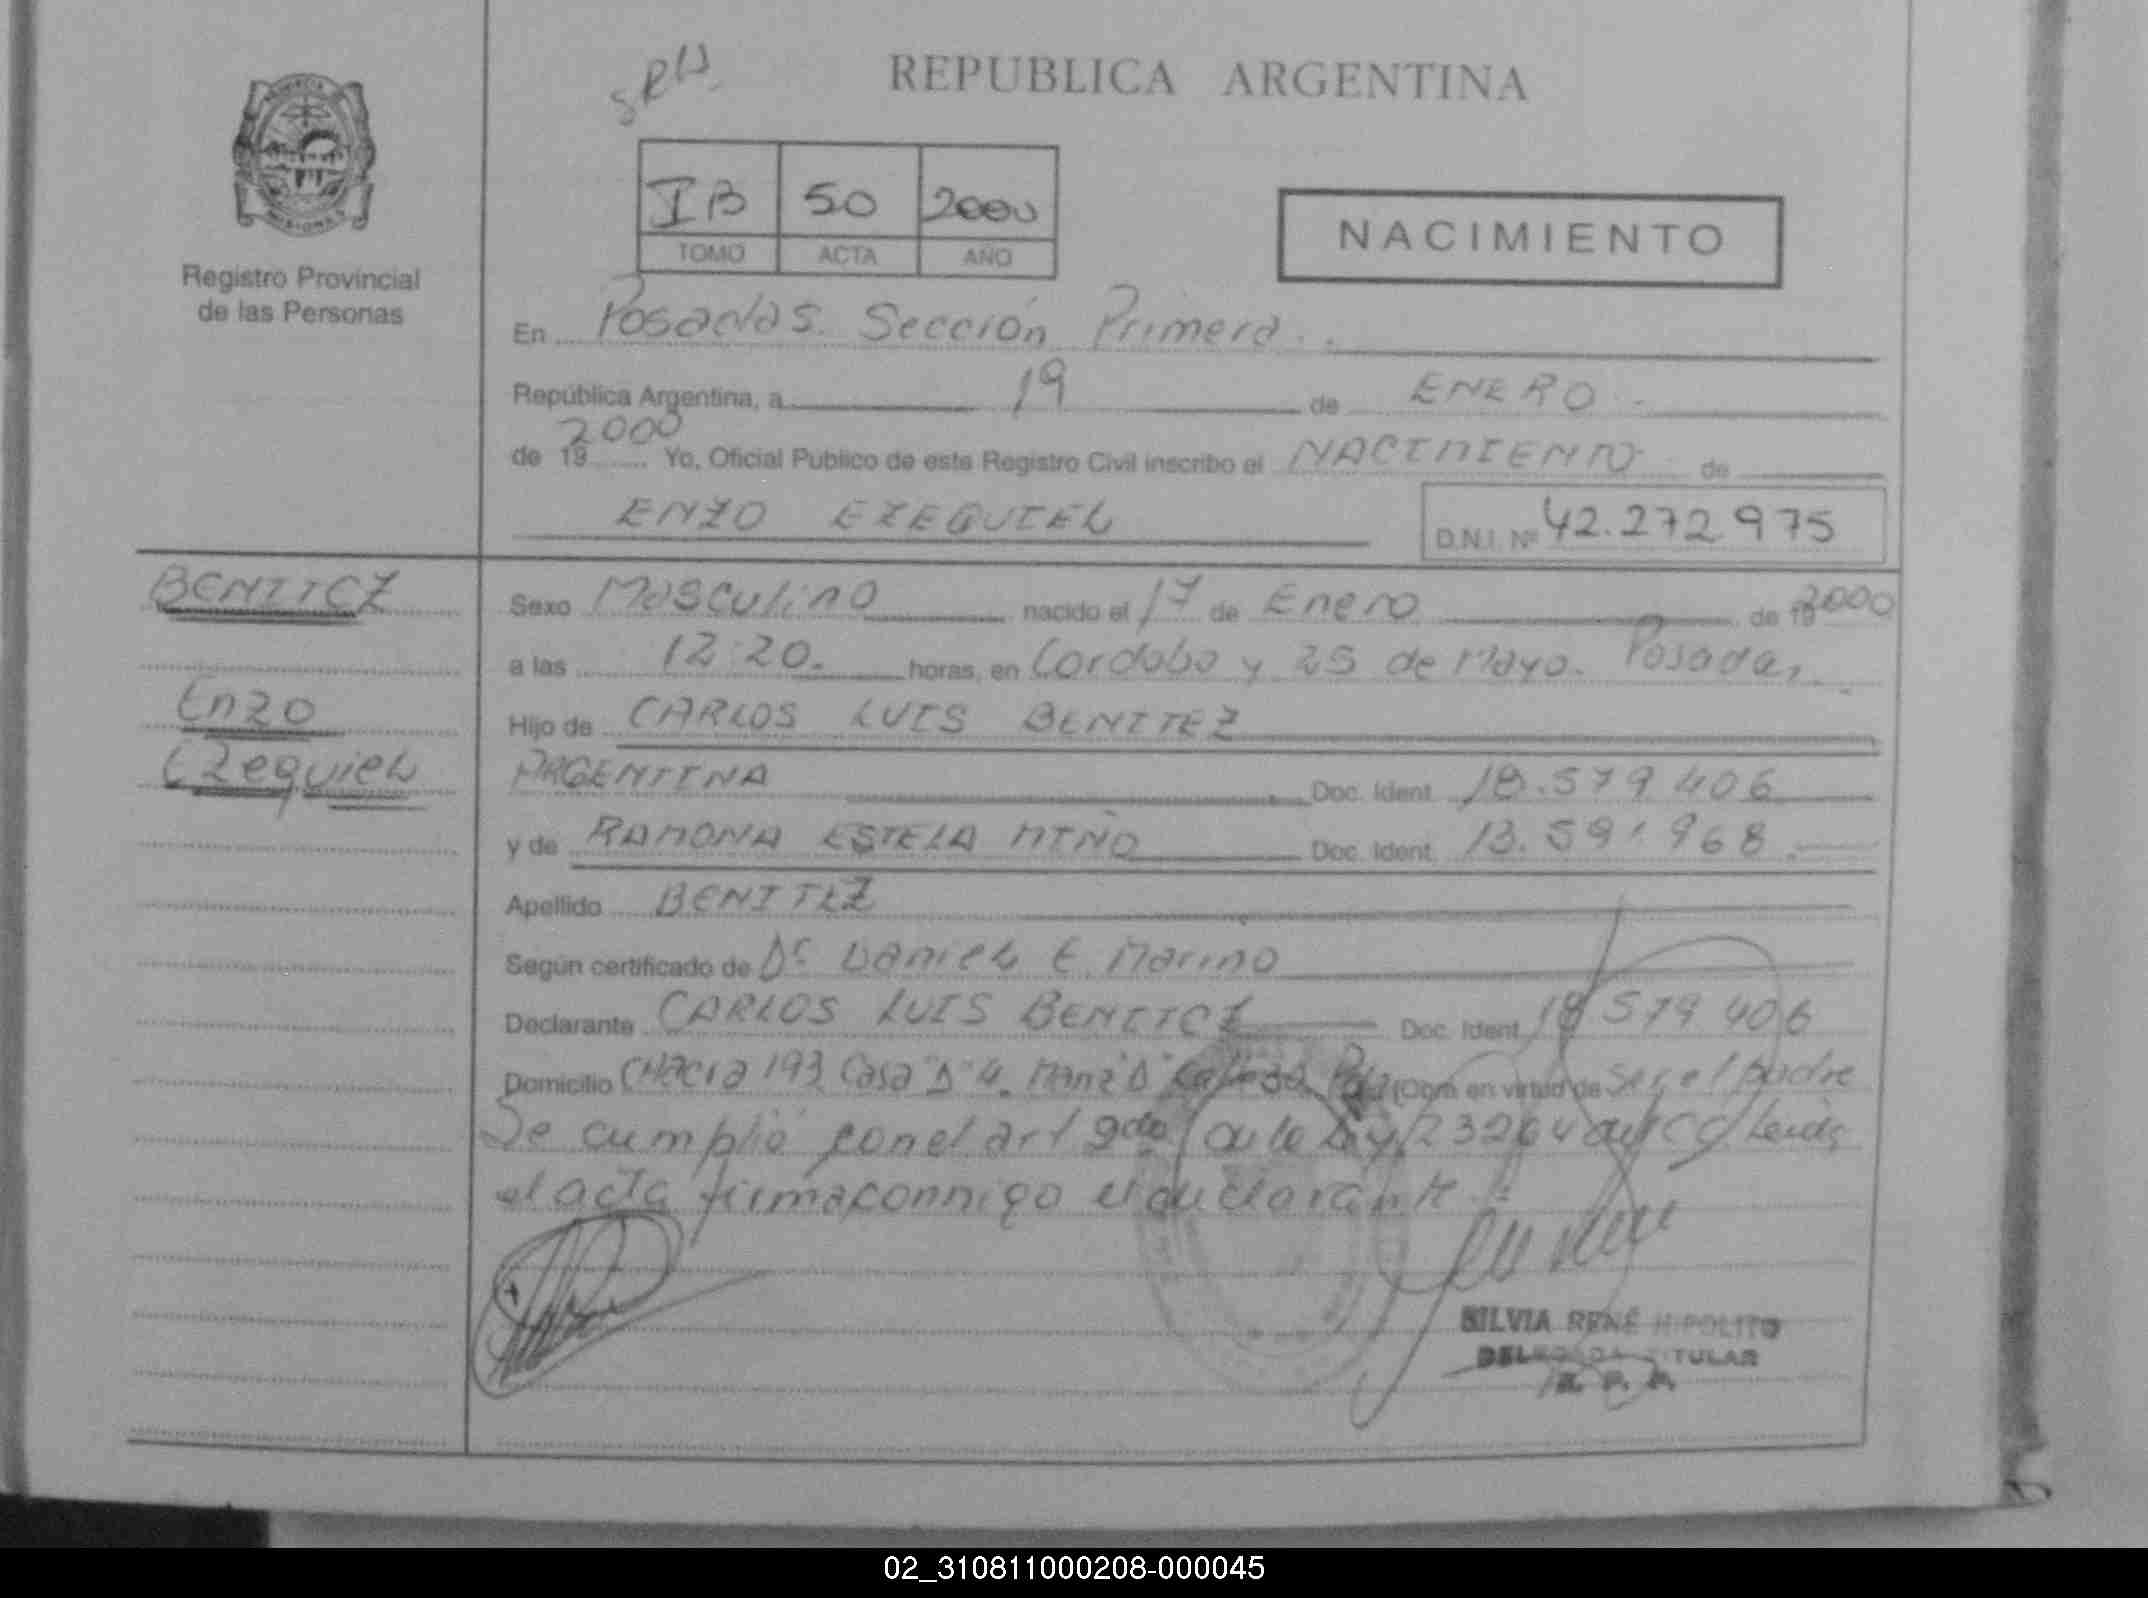 REPUBLICA ARGENTINA
Registro Provincial
de las Personas
IB 50 2000
TOMO ACTA AÑO
NACIMIENTO
En Posadas. Sección Primera.
República Argentina, a 19 de ENERO
de 19 2000 Yo, Oficial Publico de este Registro Civil inscribo el NACIMIENTO de
ENZO EZEQUIEL
D.N.I. Nº 42.272.975
BENITEZ
Enzo
Ezequiel
Sexo Masculino nacido el 17 de Enero de 19 2000
a las 12:20. horas, en Cordoba y 25 de Mayo. Posadas
Hijo de CARLOS LUIS BENITEZ
ARGENTINA Doc. Ident. 18.579.406
y de RAMONA ESTELA MIÑO Doc. Ident. 13.591.968
Apellido BENITEZ
Según certificado de Dr Daniel E. Marino
Declarante CARLOS LUIS BENITEZ Doc. Ident. 18 579 406
Domicilio Chacra 193 Casa "D" 4. Manz "D" Obra en virtud de Ser el padre
Se cumplió con el art 9 de la Ley 23264 del CC Leida
el acta firma conmigo el declarante
SILVIA RENÉ HIPOLITO
DELEGADA TITULAR
R. P. P.
02_310811000208-000045